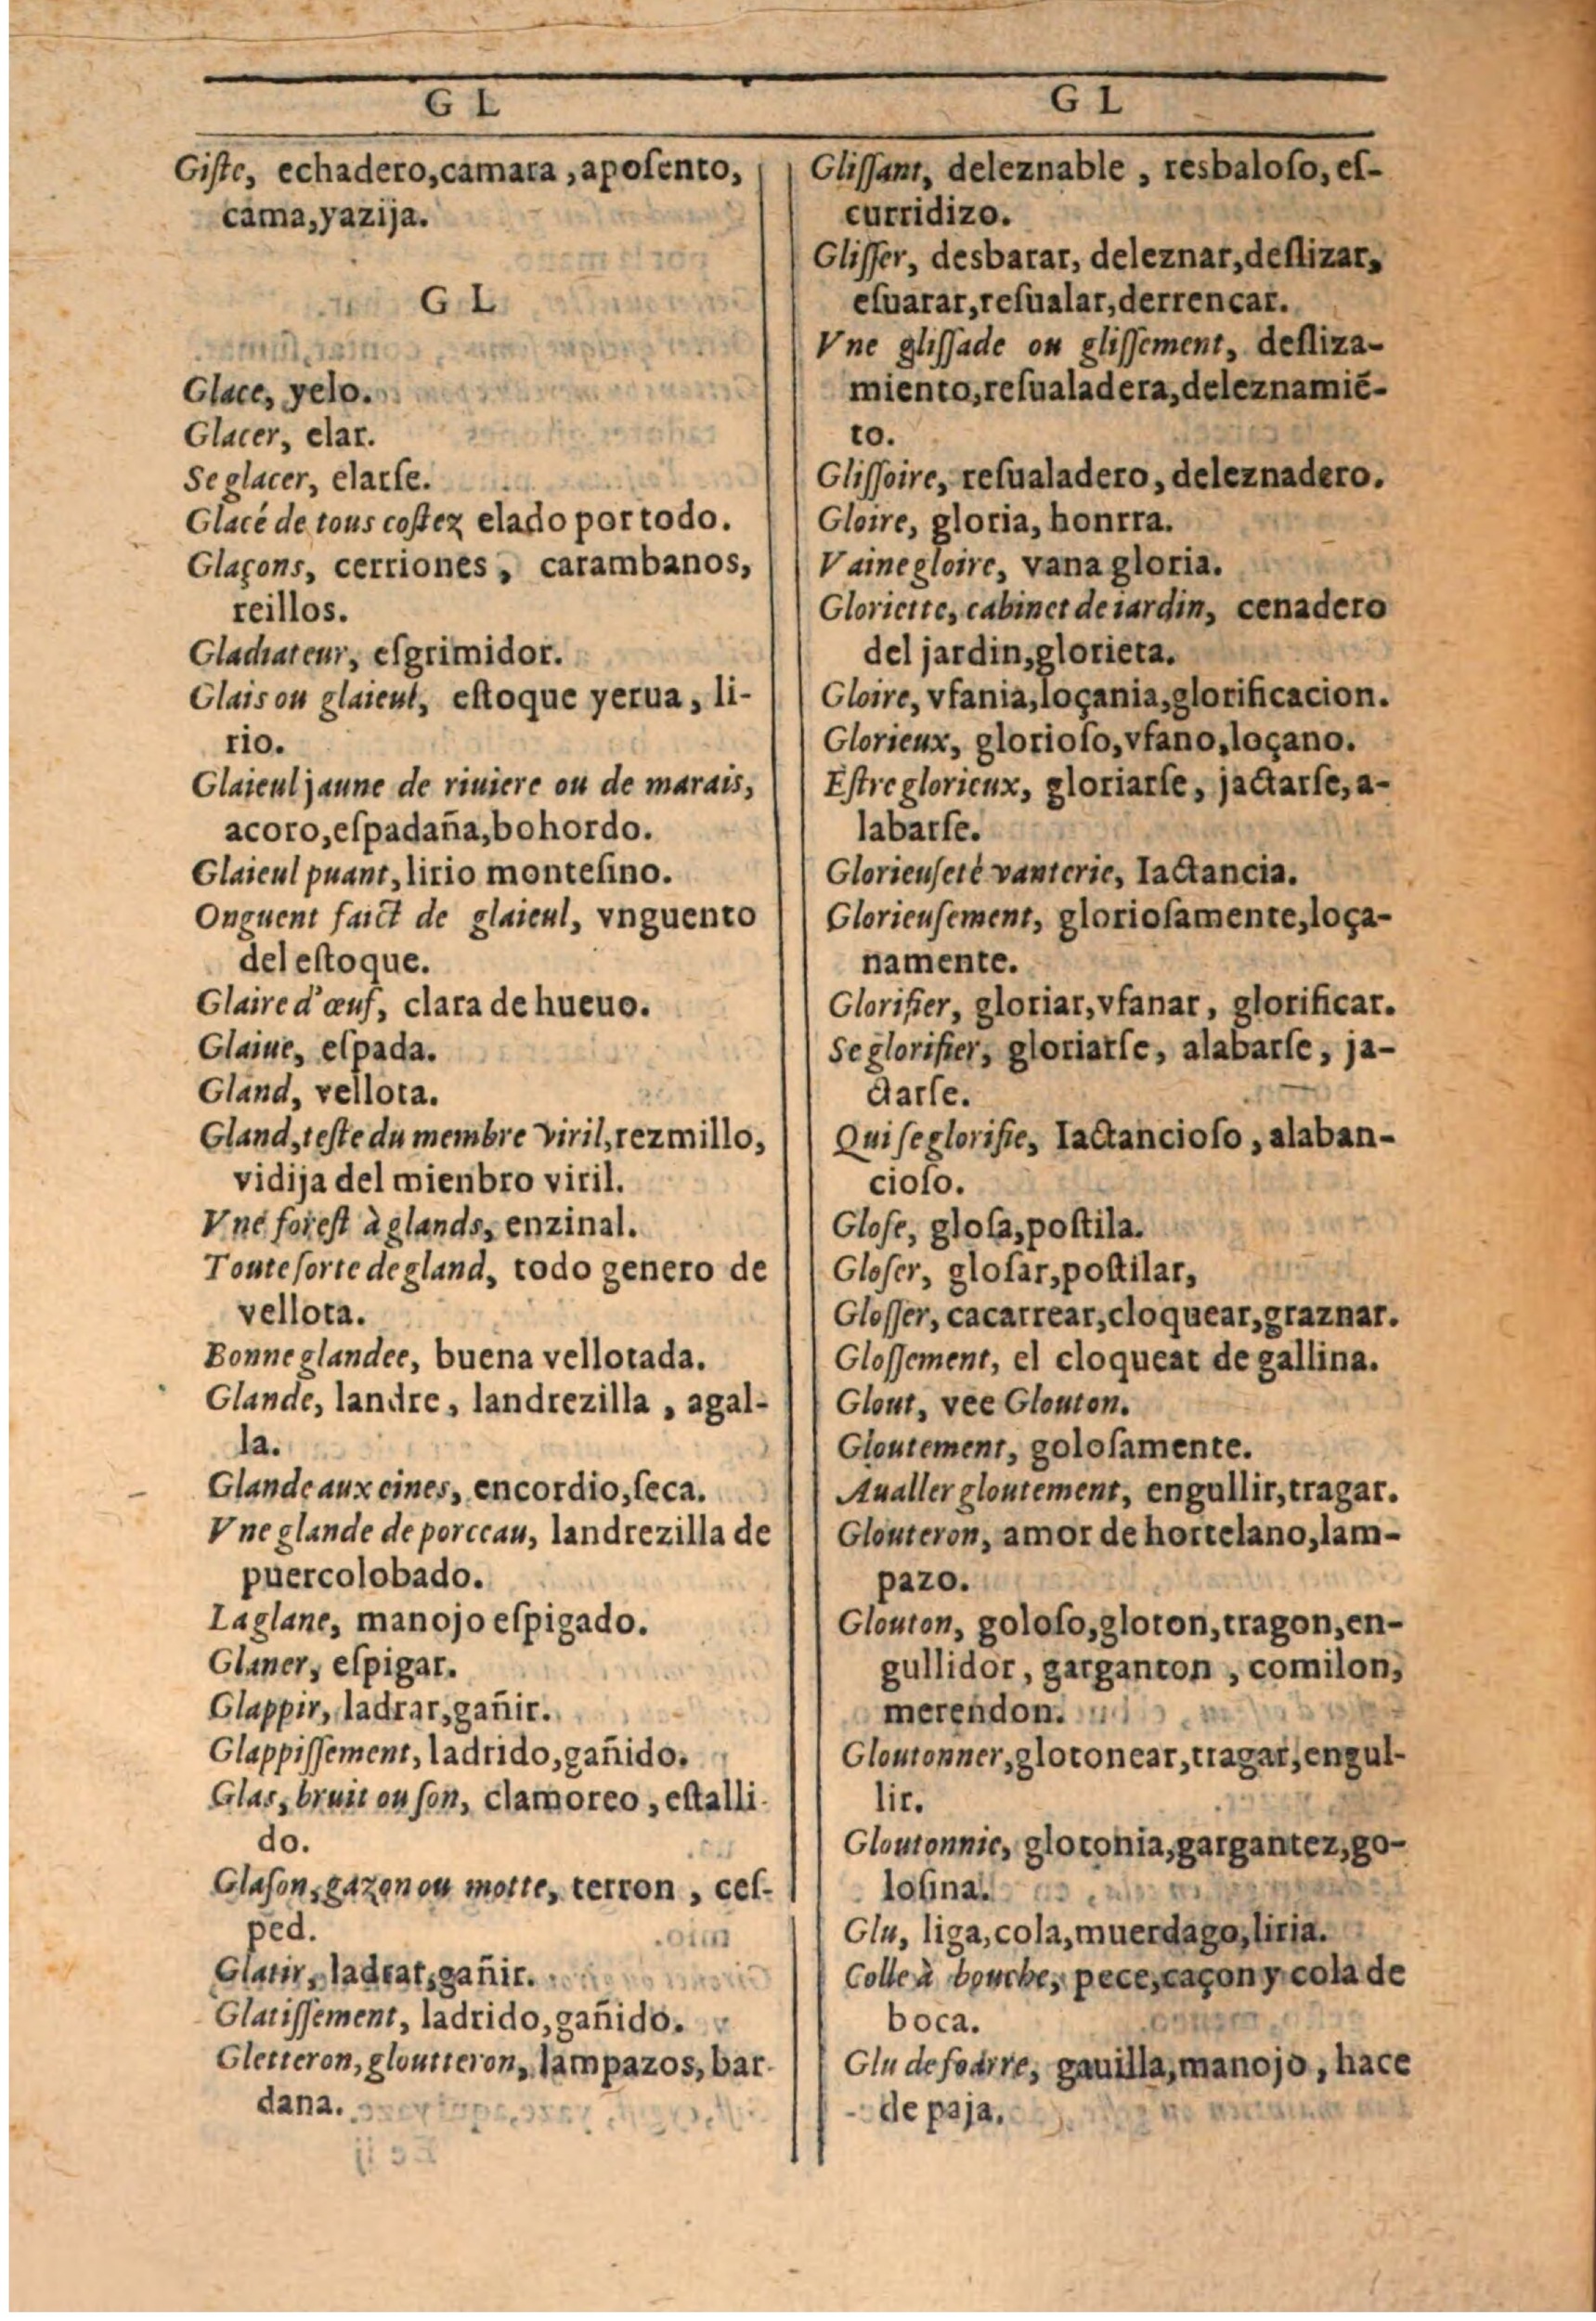 G L
Giſte, echadero,camara,apoſento,
cama,yazija.
G L
Glace, yelo.
Glacer, elar.
Se glacer, elarſe.
Glacé de tous coſtez elado por todo.
Glaçons, cerriones, carambanos,
reillos.
Gladiateur, eſgrimidor.
Glais ou glaieul, eſtoque yerua, li-
rio.
Glaieul jaune de riuiere ou de marais,
acoro,eſpadaña,bohordo.
Glaieul puant, lirio monteſino.
Onguent faict de glaieul, vnguento
del eſtoque.
Glaire d'œuf, clara de hueuo.
Glaiue, eſpada.
Gland, vellota.
Gland, teſte du membre viril, rezmillo,
vidija del mienbro viril.
Vne foreſt à glands, enzinal.
Toute ſorte de gland, todo genero de
vellota.
Bonne glandee, buena vellotada.
Glande, landre, landrezilla, agal-
la.
Glande aux eines, encordio,ſeca.
Vne glande de porceau, landrezilla de
puercolobado.
La glane, manojo eſpigado.
Glaner, eſpigar.
Glappir, ladrar,gañir.
Glappiſſement, ladrido,gañido.
Glas, bruit ou ſon, clamoreo, eſtalli-
do.
Glaſon, gazon ou motte, terron, ceſ-
ped.
Glatir, ladrar,gañir.
Glatiſſement, ladrido,gañido.
Gletteron, gloutteron, lampazos, bar-
dana.
G L
Gliſſant, deleznable, resbaloſo, eſ-
curridizo.
Gliſſer, desbarar, deleznar,deſlizar,
eſuarar,reſualar,derrencar.
Vne gliſſade ou gliſſement, deſliza-
miento,reſualadera,deleznamiẽ-
to.
Gliſſoire, reſualadero, deleznadero.
Gloire, gloria, honrra.
Vaine gloire, vana gloria.
Gloriette, cabinet de iardin, cenadero
del jardin,glorieta.
Gloire, vfania,loçania,glorificacion.
Glorieux, glorioſo,vfano,loçano.
Eſtre glorieux, gloriarſe, jactarſe, a-
labarſe.
Glorieuſeté vanterie, Iactancia.
Glorieuſement, glorioſamente,loça-
namente.
Glorifier, gloriar,vfanar, glorificar.
Se glorifier, gloriarſe, alabarſe, ja-
ctarſe.
Qui ſe glorifie, Iactancioſo, alaban-
cioſo.
Gloſe, gloſa,poſtila.
Gloſer, gloſar,poſtilar,
Gloſſer, cacarrear,cloquear,graznar.
Gloſſement, el cloquear de gallina.
Glout, vee Glouton.
Gloutement, goloſamente.
Aualler gloutement, engullir,tragar.
Glouteron, amor de hortelano,lam-
pazo.
Glouton, goloſo,gloton,tragon,en-
gullidor, garganton, comilon,
merendon.
Gloutonner,glotonear,tragar,engul-
lir.
Gloutonnie, glotonia,gargantez,go-
loſina.
Glu, liga,cola,muerdago,liria.
Colle à bouche, pece,caçon y cola de
boca.
Glu de foarre, gauilla,manojo, hace
de paja.